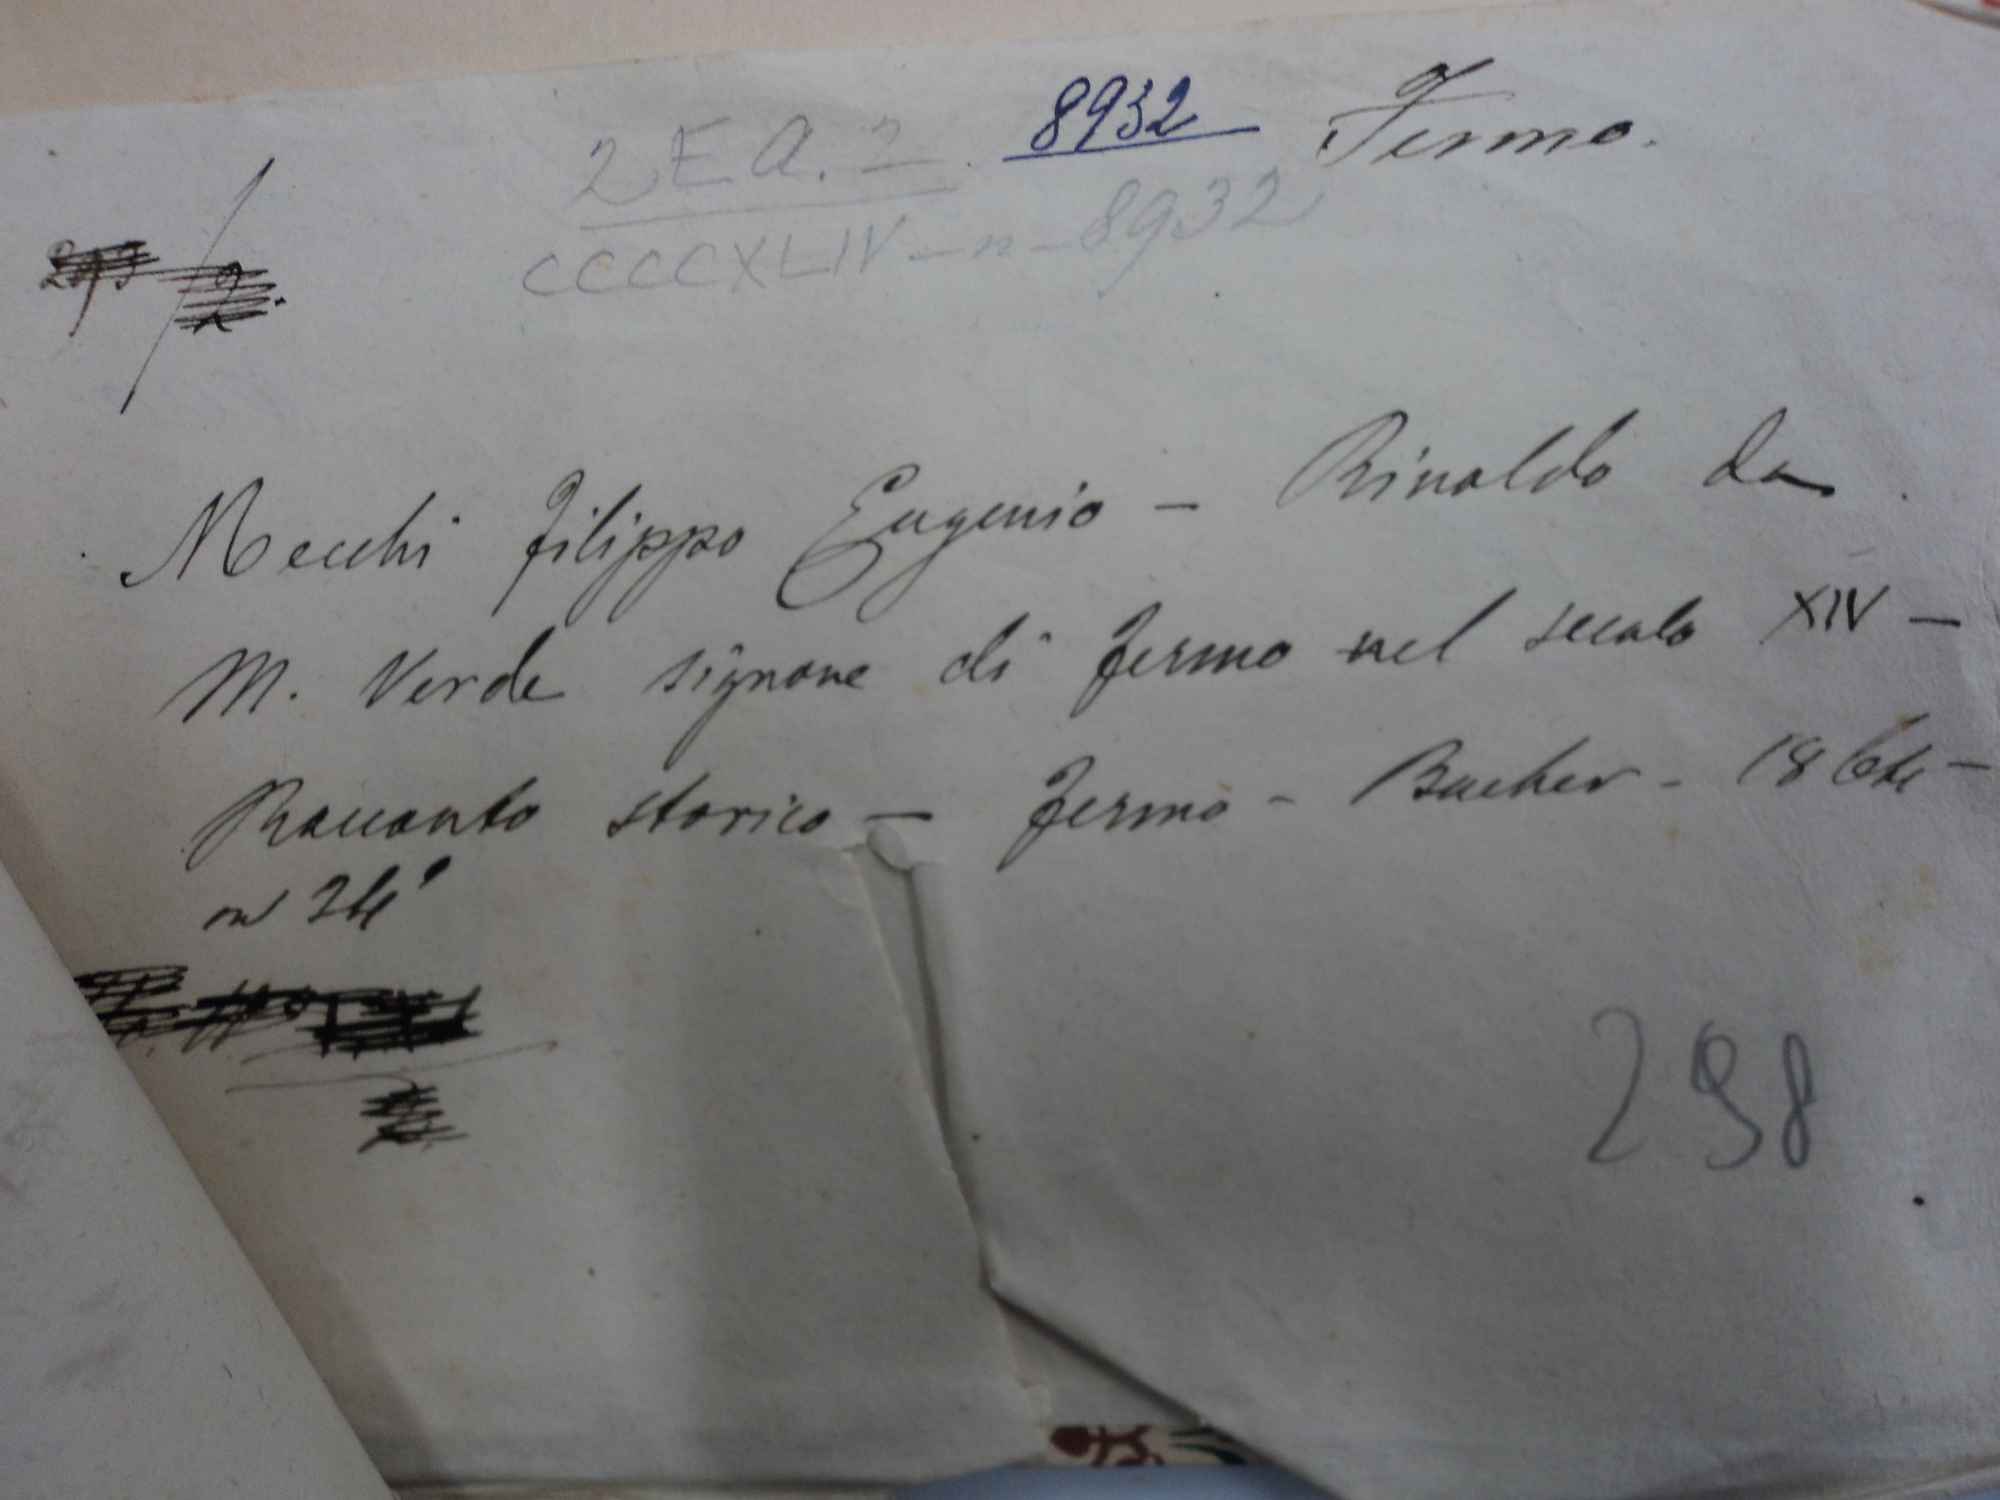 8932 Fermo.
2 E A. 2
CCCCXLIV - n - 8932
Mecchi Filippo Eugenio - Rinaldo da
M. Verde signore di Fermo nel secolo XIV -
Racconto storico - Fermo - Bacher -
in 24°
298